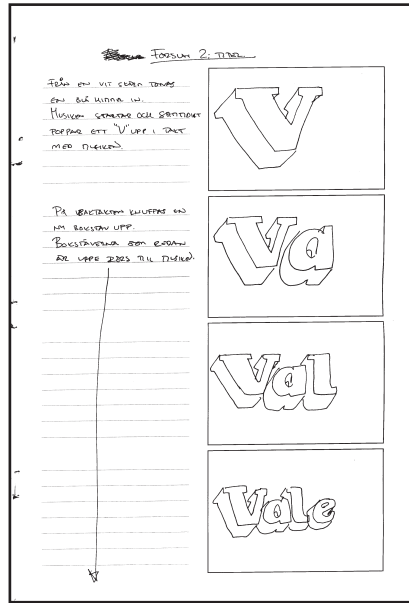 Försum 2: Titel
Från en vit skärm tonas
en blå himmel in.
Musiken startar och samtidigt
poppar ett "V" upp i takt
med musiken.
V
På baktakten knuffas en
ny bokstav upp.
Bokstäverna som redan
är uppe rörs till musiken.
Va
Val
Vale